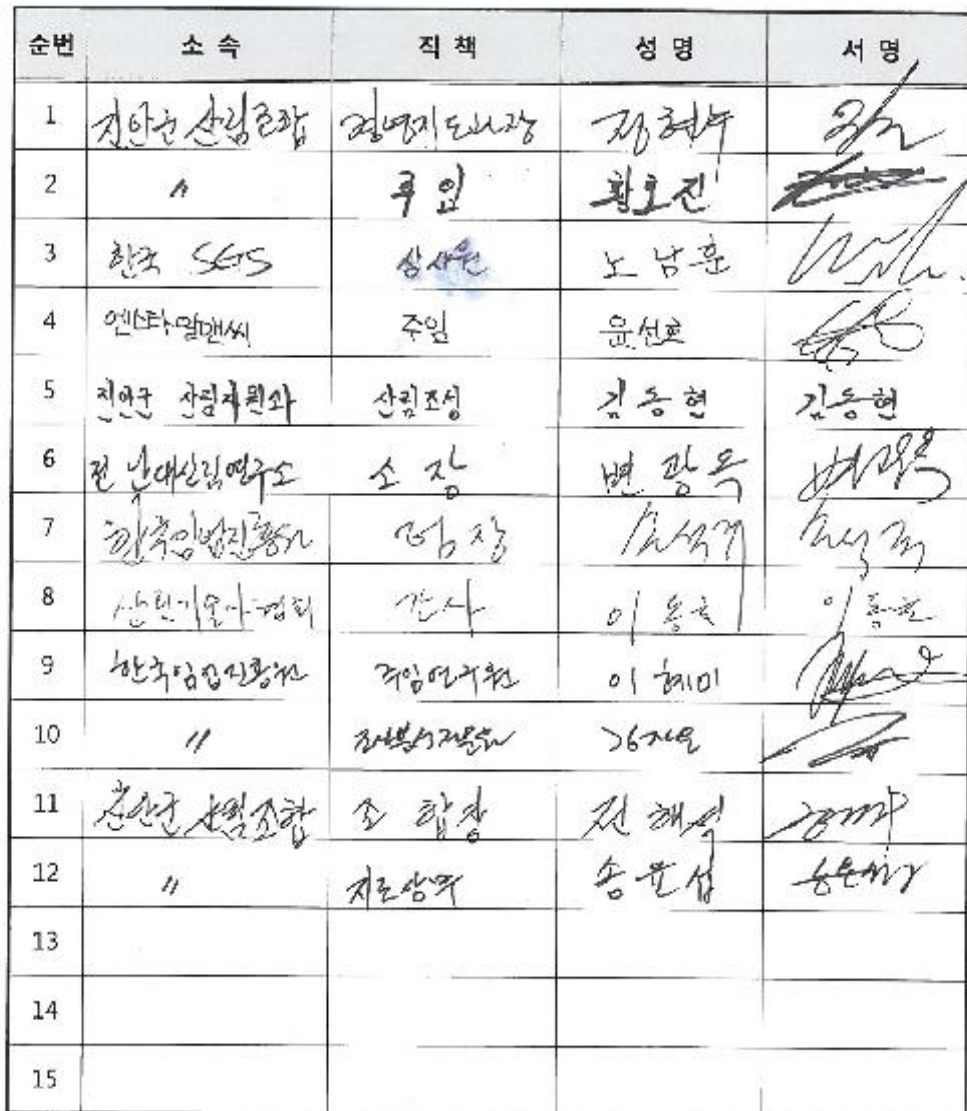 순번 소 속 직 책 성 명 서 명
1 진안군 산림조합 경영지도과장 정현수
2 〃 주임 황호진
3 한국 SGS 심사원 노남훈
4 주임 윤선호
5 진안군 산림자원과 산림조성 김동현 김동현
6 전 난대산림연구소 소장 변광옥 변광옥
7 한국임업진흥원
8 산림기술사협회 간사 이동호 이동호
9 한국임업진흥원 주임연구원 이혜미
10 〃
11 진안군 산림조합 조합장 전해석
12 〃 지도상무 송윤섭
13
14
15